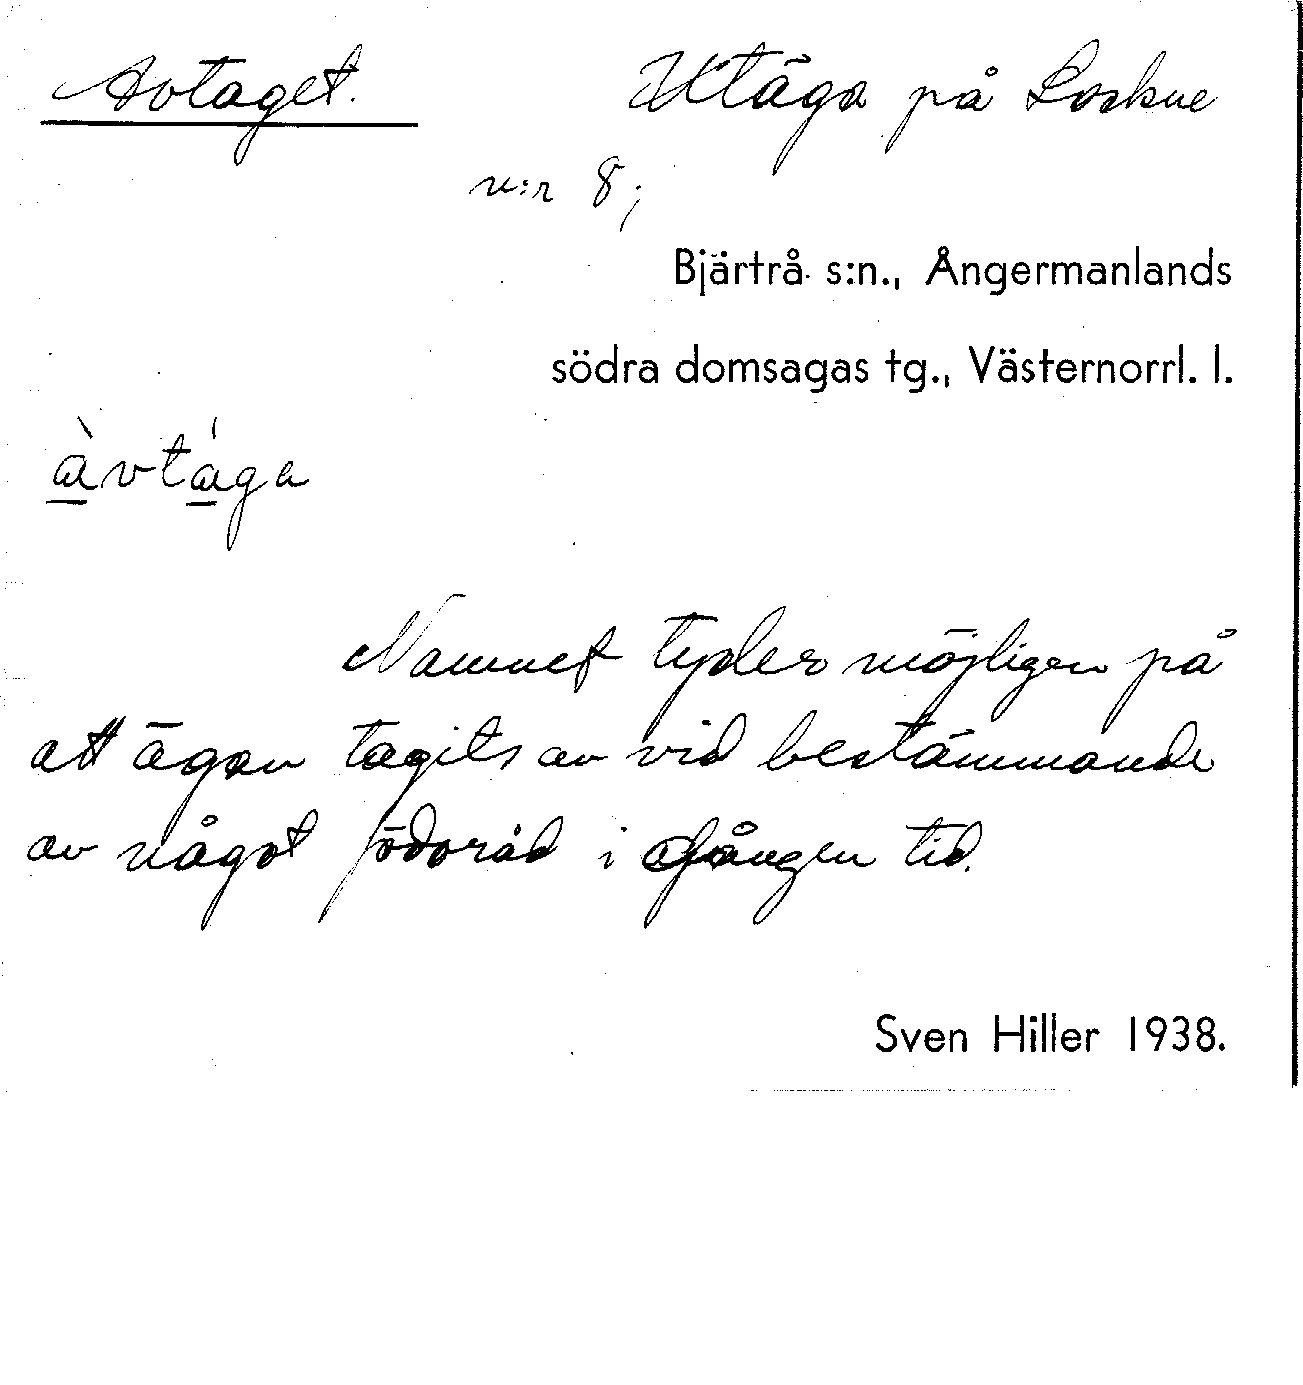 Avtaget. Utäga på Lockne
n:r 8;
Bjärtrå s:n., Ångermanlands
södra domsagas tg., Västernorrl. l.
àvtága
Namnet tyder möjligen på
att ägan tagits av vid bestämmande
av något födoråd i gången tid.
Sven Hiller 1938.